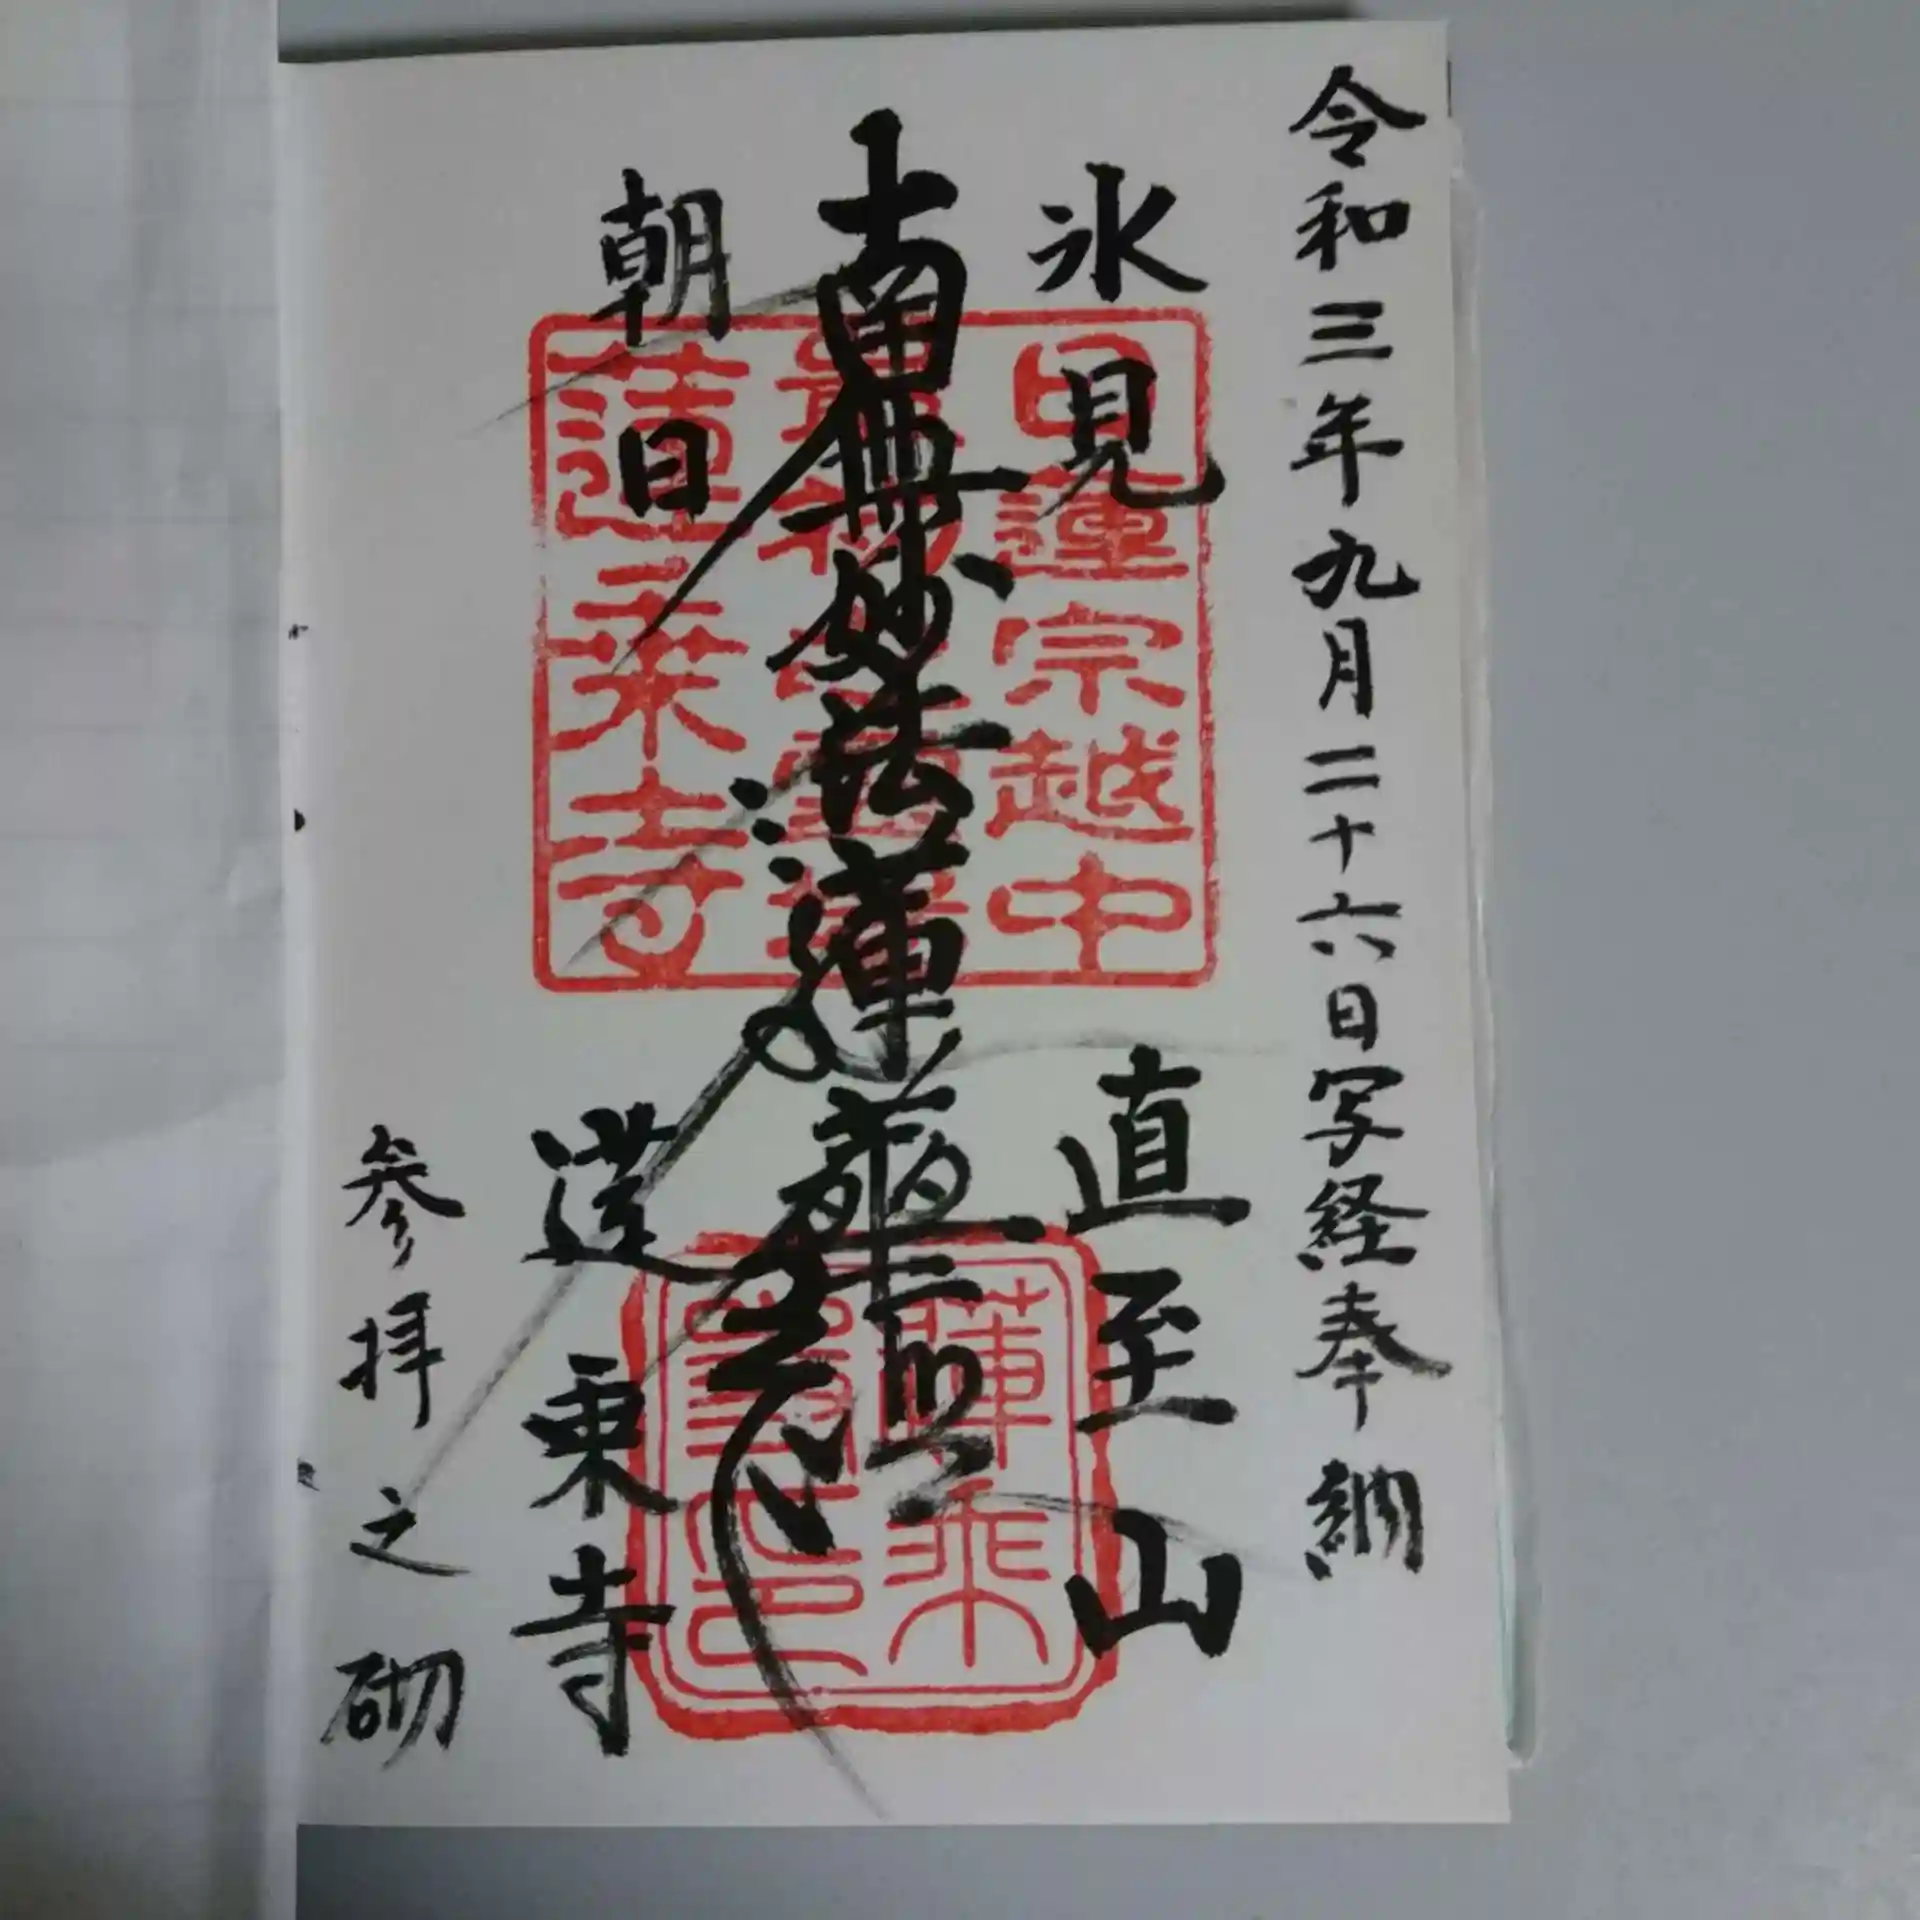 令和三年九月二十六日写経奉納
氷見
直至山
南無妙法蓮華経
朝日
蓮乗寺
参拝之砌
日蓮宗越中
最初
蓮乗寺
蓮乗